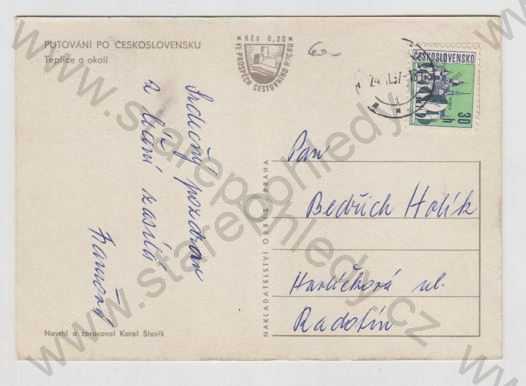 PUTOVÁNÍ PO ČESKOSLOVENSKU
Teplice a okolí
Kčs 0,20
VE PROSPĚCH CESTOVNÍHO RUCHU
Srdečný pozdrav
z lázní zasílá
NAKLADATELSTVÍ ORBIS PRAHA
Navrhl a zpracoval Karel
ČESKOSLOVENSKO
30
h
Pan
Bedřich Holík
Havlíčkova ul.
Radotín
www.starepohledy.cz